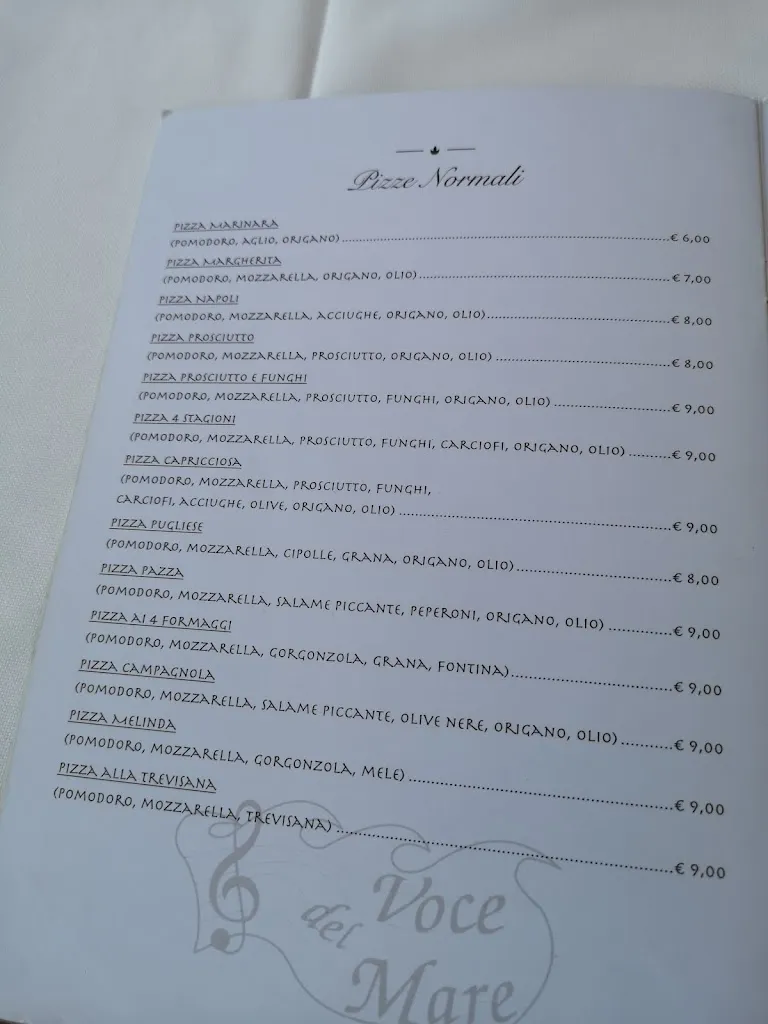 Pizze Normali
PIZZA MARINARA
(POMODORO, AGLIO, ORIGANO)........€ 6,00
PIZZA MARGHERITA
(POMODORO, MOZZARELLA, ORIGANO, OLIO)........€ 7,00
PIZZA NAPOLI
(POMODORO, MOZZARELLA, ACCIUGHE, ORIGANO, OLIO)........€ 8,00
PIZZA PROSCIUTTO
(POMODORO, MOZZARELLA, PROSCIUTTO, ORIGANO, OLIO) ........€ 8,00
PIZZA PROSCIUTTO E FUNGHI
(POMODORO, MOZZARELLA, PROSCIUTTO, FUNGHI, ORIGANO, OLIO) ........€ 9,00
PIZZA 4 STAGIONI
(POMODORO, MOZZARELLA, PROSCIUTTO, FUNGHI, CARCIOFI, ORIGANO, OLIO) ........€ 9,00
PIZZA CAPRICCIOSA
(POMODORO, MOZZARELLA, PROSCIUTTO, FUNGHI,
CARCIOFI, ACCIUGHE, OLIVE, ORIGANO, OLIO) ........€ 9,00
PIZZA PUGLIESE
(POMODORO, MOZZARELLA, CIPOLLE, GRANA, ORIGANO, OLIO)........€ 8,00
PIZZA PAZZA
(POMODORO, MOZZARELLA, SALAME PICCANTE, PEPERONI, ORIGANO, OLIO) ........€ 9,00
PIZZA AI 4 FORMAGGI
(POMODORO, MOZZARELLA, GORGONZOLA, GRANA, FONTINA)........€ 9,00
PIZZA CAMPAGNOLA
(POMODORO, MOZZARELLA, SALAME PICCANTE, OLIVE NERE, ORIGANO, OLIO) ........€ 9,00
PIZZA MELINDA
(POMODORO, MOZZARELLA, GORGONZOLA, MELE) ........€ 9,00
PIZZA ALLA TREVISANA
(POMODORO, MOZZARELLA, TREVISANA) ........€ 9,00
Voce
del
Mare